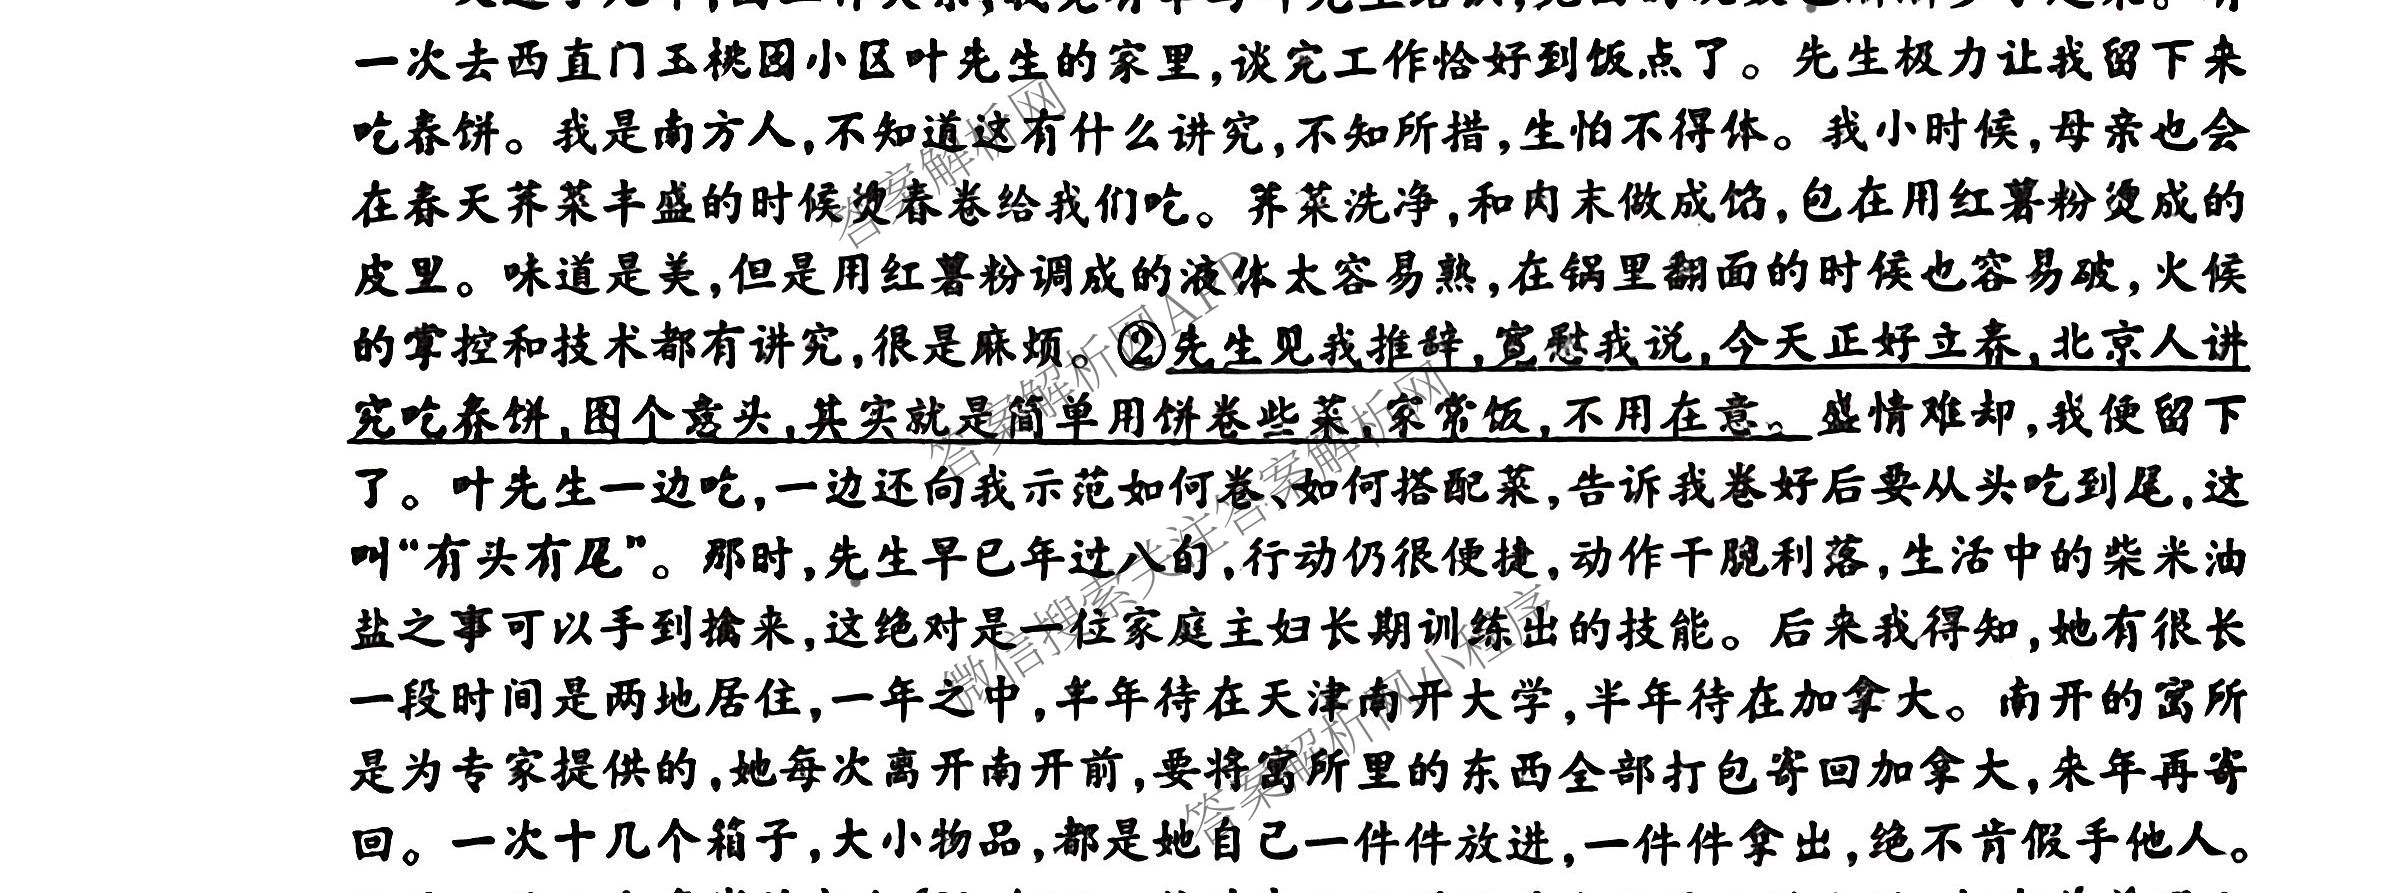 一次去西直门玉桃园小区叶先生的家里,谈完工作恰好到饭点了。先生极力让我留下来
吃春饼。我是南方人,不知道这有什么讲究,不知所措,生怕不得体。我小时候,母亲也会
在春天荠菜丰盛的时候烫春卷给我们吃。荠菜洗净,和肉末做成馅,包在用红薯粉烫成的
皮里。味道是美,但是用红薯粉调成的液体太容易熟,在锅里翻面的时候也容易破,火候
的掌控和技术都有讲究,很是麻烦。②先生见我推辞,宽慰我说,今天正好立春,北京人讲
究吃春饼,图个意头,其实就是简单用饼卷些菜,家常饭,不用在意。盛情难却,我便留下
了。叶先生一边吃,一边还向我示范如何卷、如何搭配菜,告诉我卷好后要从头吃到尾,这
叫“有头有尾”。那时,先生早已年过八旬,行动仍很便捷,动作干脆利落,生活中的柴米油
盐之事可以手到擒来,这绝对是一位家庭主妇长期训练出的技能。后来我得知,她有很长
一段时间是两地居住,一年之中,半年待在天津南开大学,半年待在加拿大。南开的寓所
是为专家提供的,她每次离开南开前,要将寓所里的东西全部打包寄回加拿大,来年再寄
回。一次十几个箱子,大小物品,都是她自己一件件放进,一件件拿出,绝不肯假手他人。
答案解析网
答案解析网APP
微信搜索关注答案解析网
答案解析网小程序